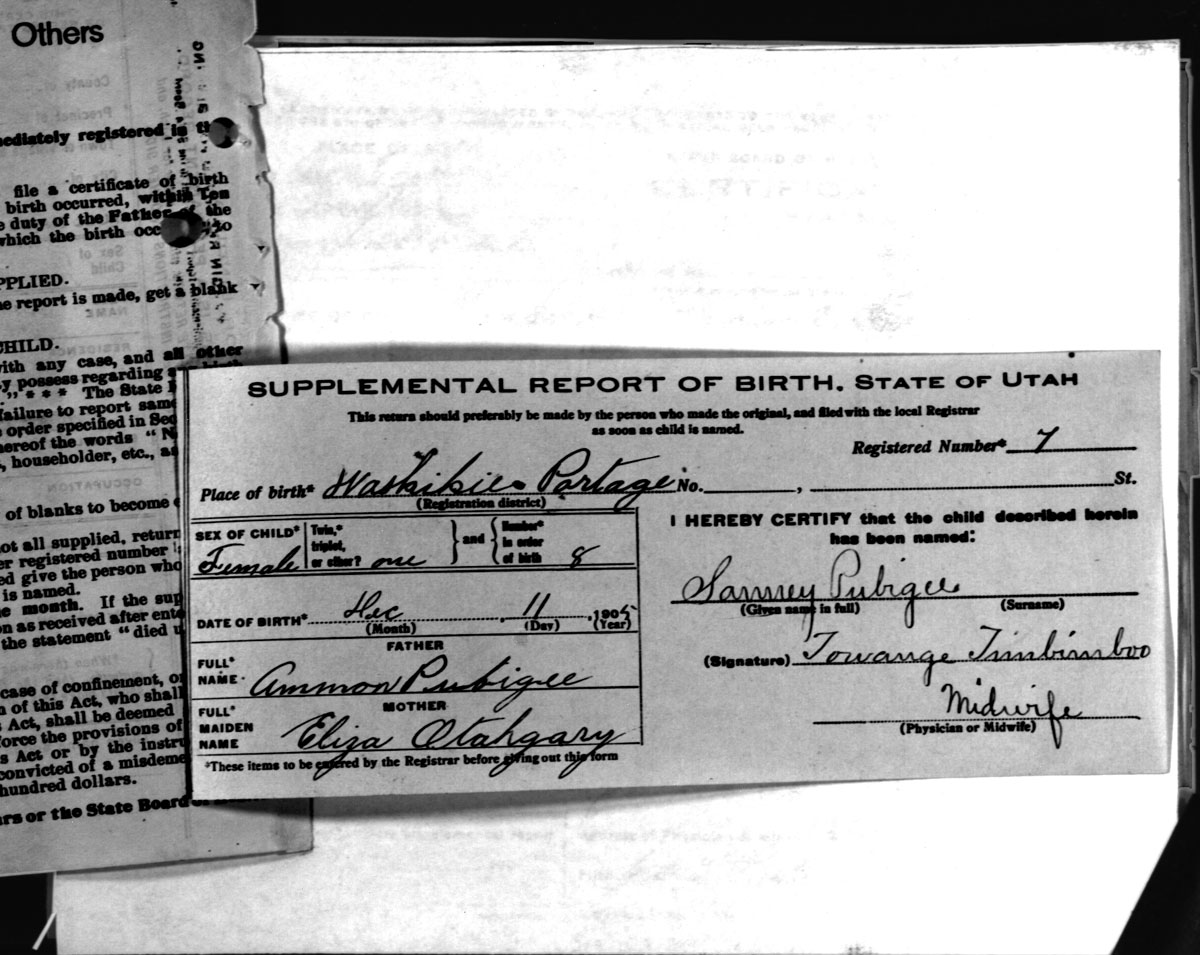 Others
mediately registered in th
file a certificate of birth
birth occurred, within Ten
e duty of the Father of the
which the birth occ to
PPLIED.
he report is made, get a blank
CHILD.
with any case, and all other
y possess regarding
" * * * The State
failure to report same
order specified in Sec
hereof the words "N
, householder, etc., as
of blanks to become
not all supplied, return
er registered number
ed give the person who
is named.
he month. If the sup
on as received after ente
the statement "died u
case of confinement, or
n of this Act, who shall
s Act, shall be deemed
force the provisions of
s Act or by the instru
convicted of a misdeme
hundred dollars.
ars or the State Board
SUPPLEMENTAL REPORT OF BIRTH. STATE OF UTAH
This return should preferably be made by the person who made the original, and filed with the local Registrar
as soon as child is named.
Registered Number* 7
Place of birth* Washikie Portage No. , St.
(Registration district)
SEX OF CHILD* Female Twin,* triplet, or other? one } and { Number* in order of birth 8
DATE OF BIRTH* Dec 11 1905
(Month) (Day) (Year)
FATHER
FULL* NAME Ammon Pubigee
MOTHER
FULL* MAIDEN NAME Eliza Otahgary
*These items to be entered by the Registrar before giving out this form
I HEREBY CERTIFY that the child described herein
has been named:
Pubigee
(Given name in full) (Surname)
(Signature) Towange Timbimboo
Midwife
(Physician or Midwife)